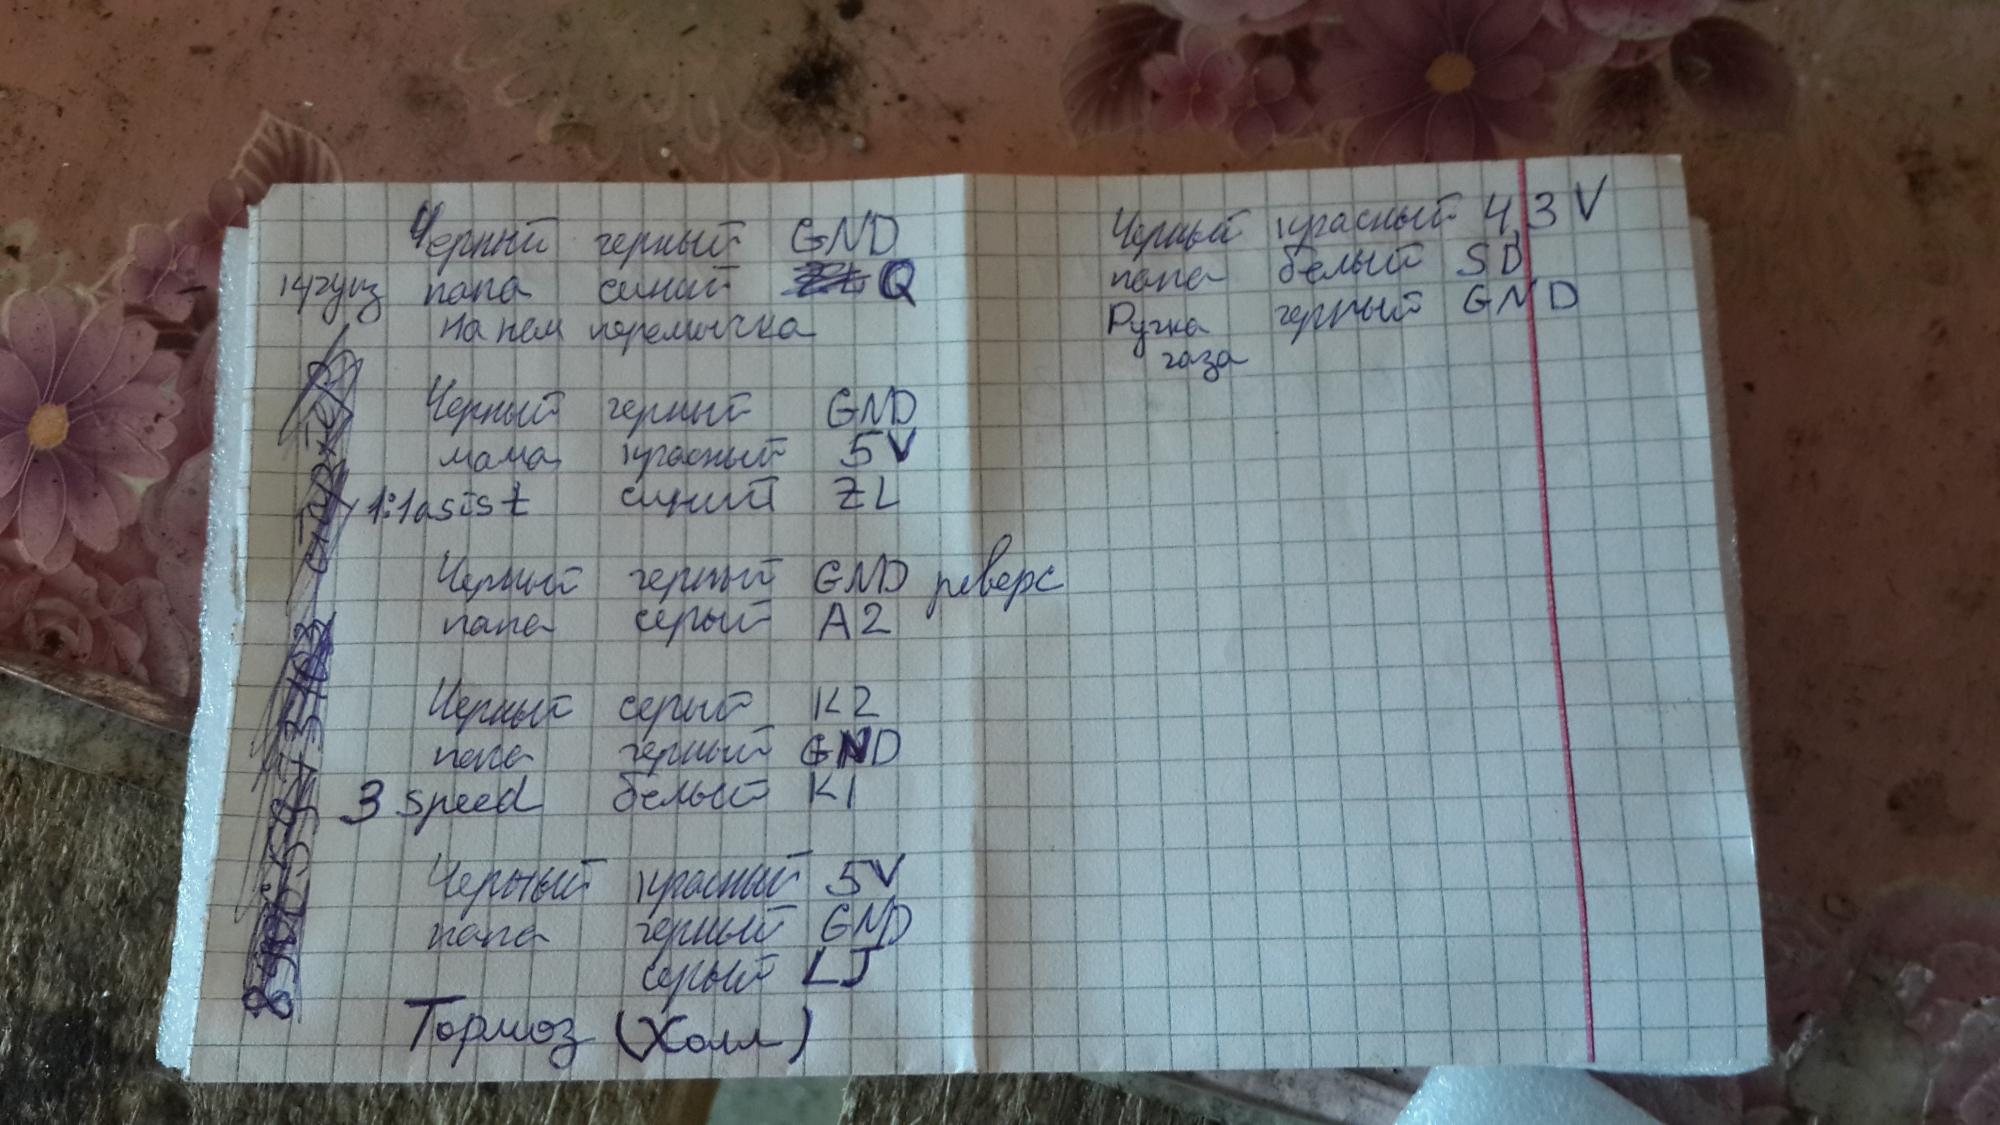 Черный черный GND
круиз папа синий Q
На нем перемычка
Черный черный GND
мама красный 5V
1:1asist синий ZL
Черный черный GND реверс
папа серый A2
Черный серый K2
папа черный GND
3 speed белый K1
Черный красный 5V
папа черный GND
серый LJ
Тормоз (Холл)
Черный красный 4,3V
папа белый SD
Ручка черный GND
газа